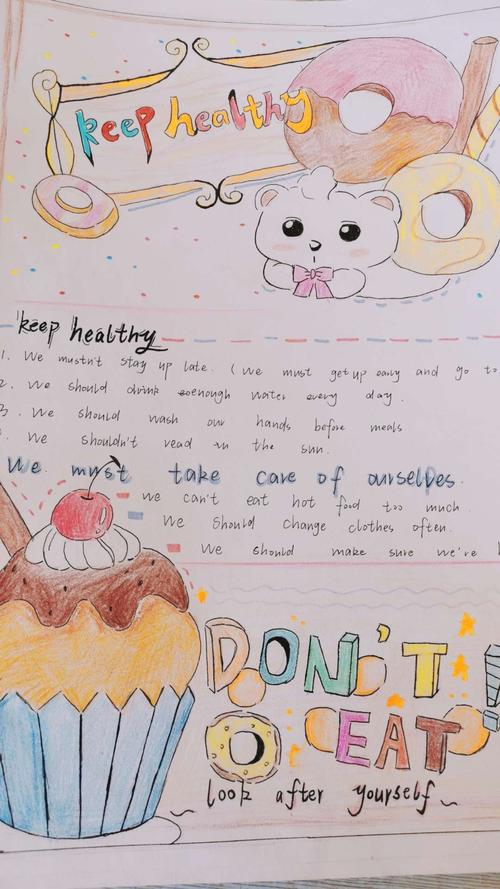 keep healthy
keep healthy
1. We mustn't stay up late. (We must get up early and go to
2. We should drink enough water every day.
3. We should wash our hands before meals
. We shouldn't read in the sun.
We must take care of ourselves.
We can't eat hot food too much.
We should change clothes often.
We should make sure we're
DON'T!
EAT
look after yourself